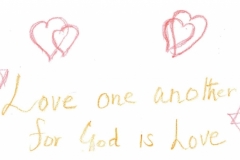 Love one another
for God is Love